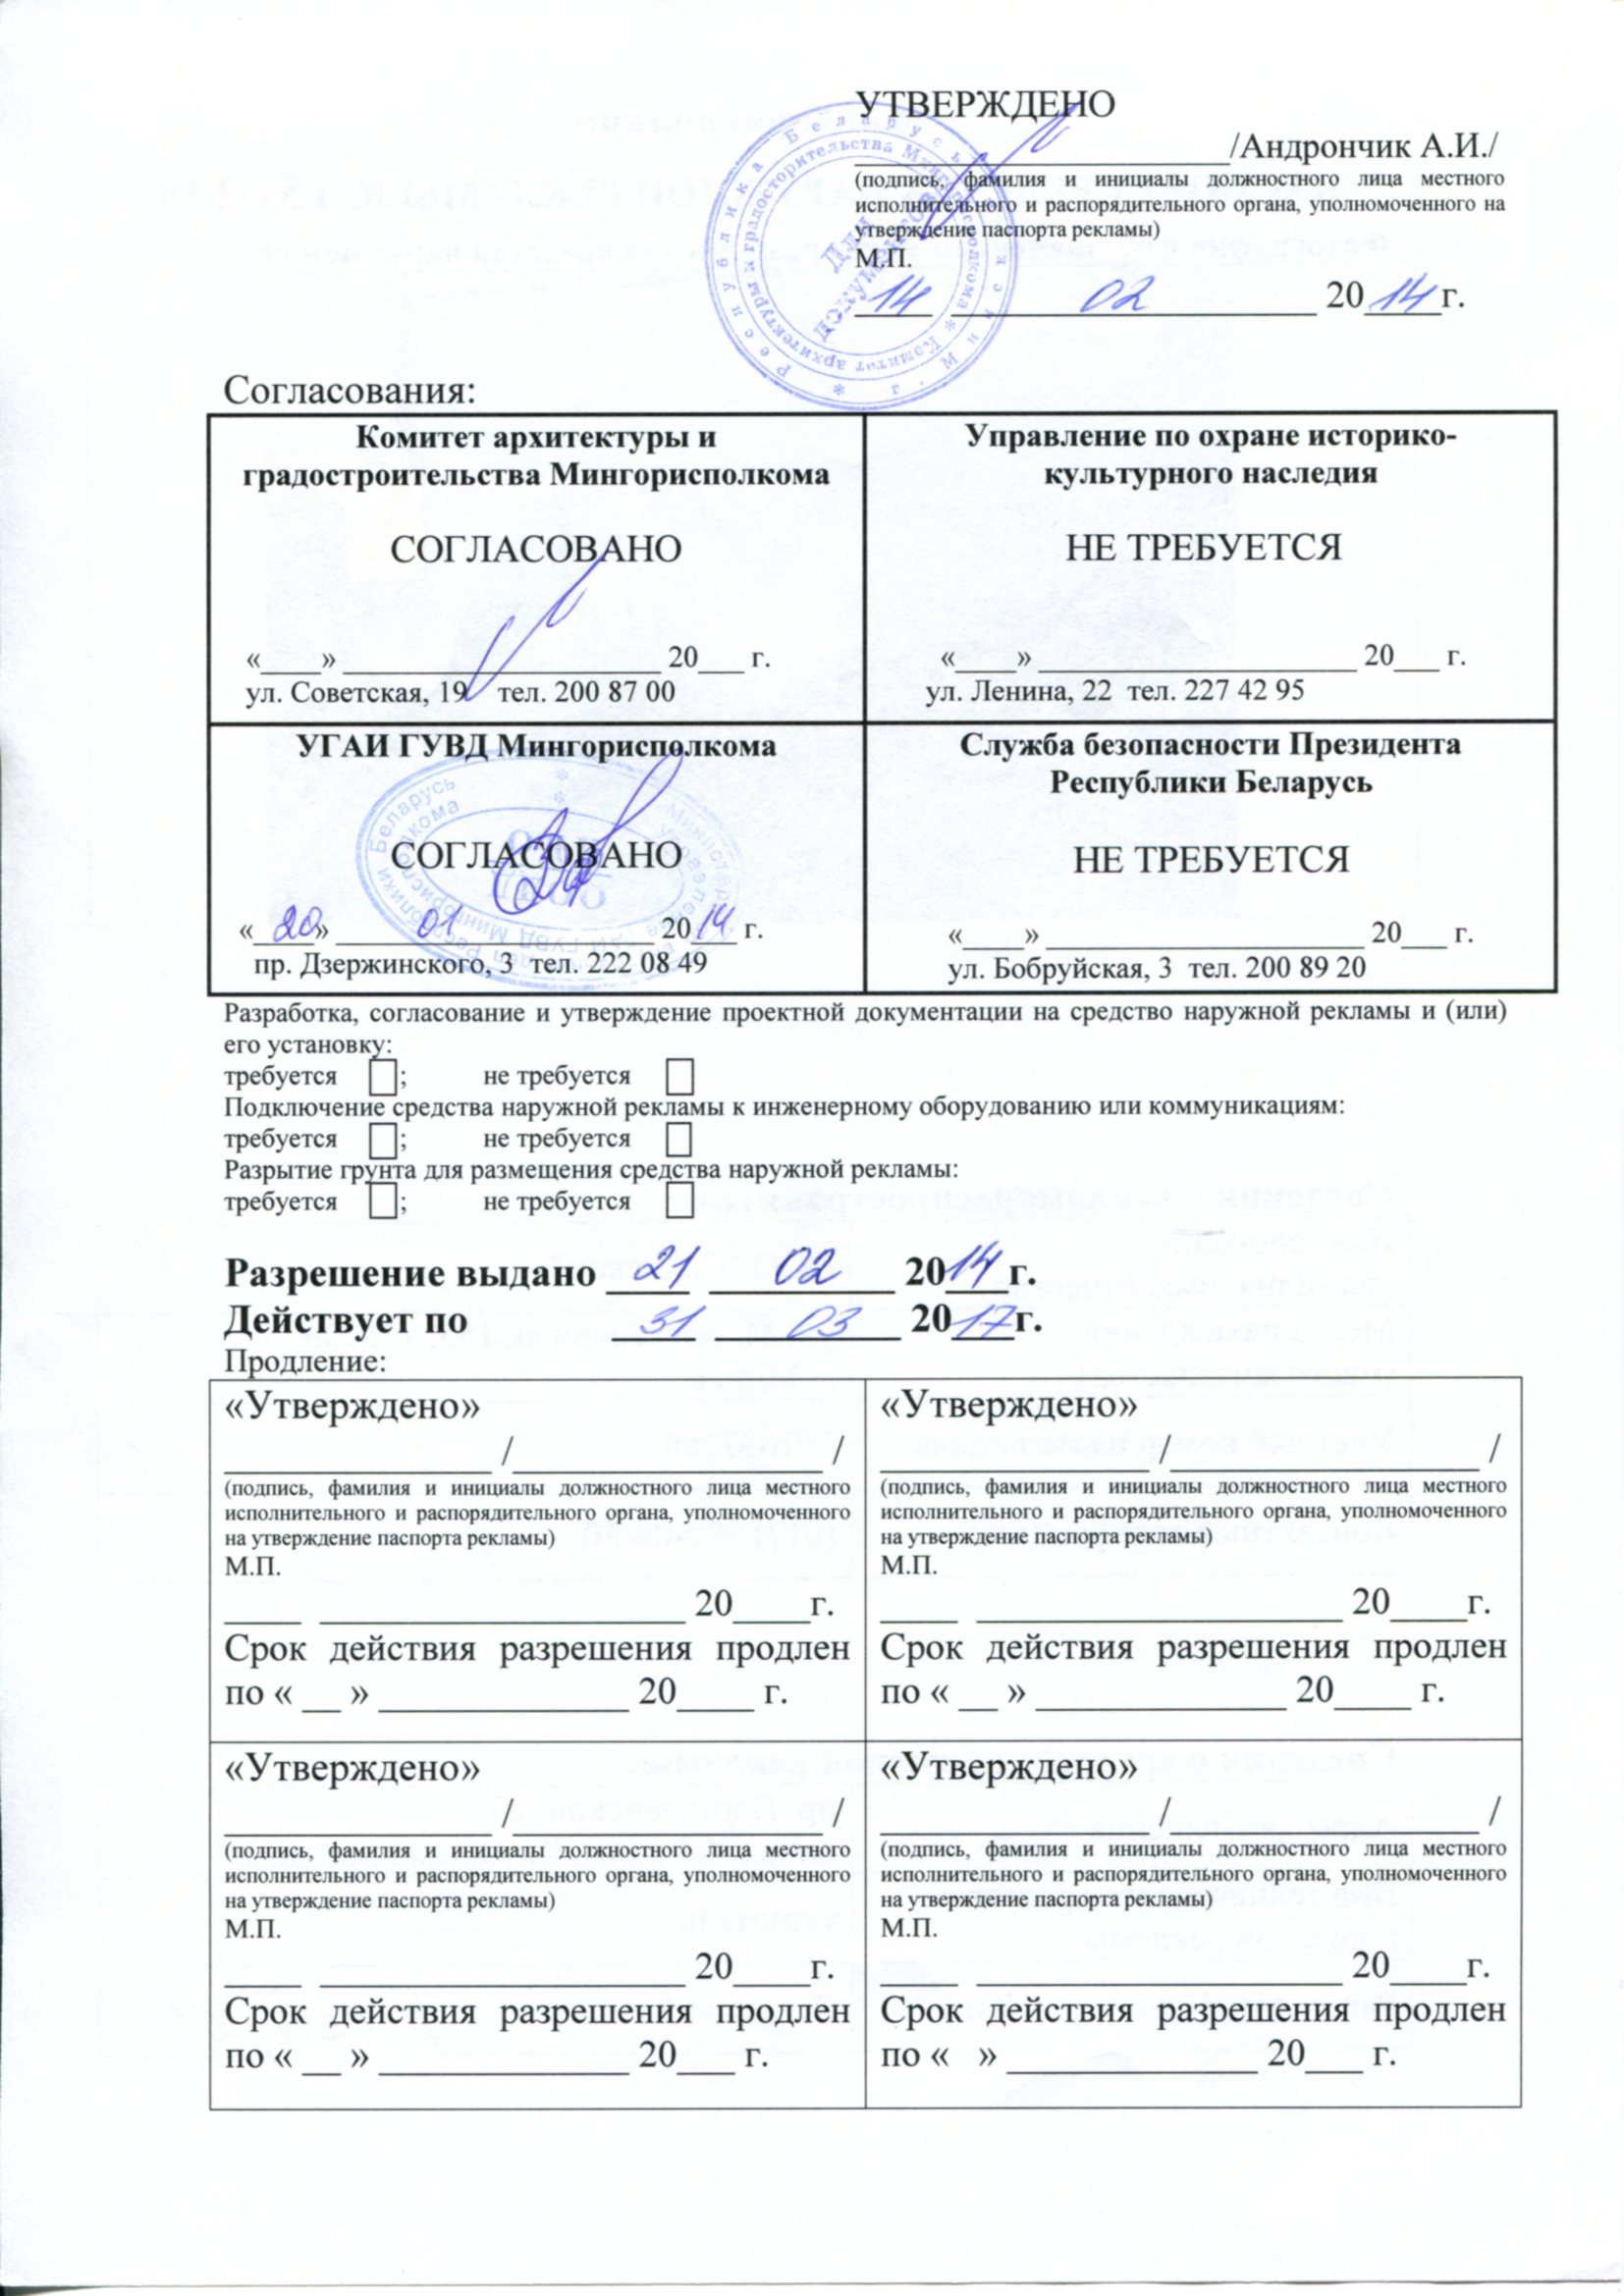 УТВЕРЖДЕНО
____________________/Андрончик А.И./
(подпись, фамилия и инициалы должностного лица местного
исполнительного и распорядительного органа, уполномоченного на
утверждение паспорта рекламы)
М.П.
14 02 2014г.
Республика Беларусь * г. Минск
Комитет архитектуры и градостроительства Мингорисполкома *
Для
документов
Согласования:
Комитет архитектуры и
градостроительства Мингорисполкома
СОГЛАСОВАНО
«____» ____________________ 20___ г.
ул. Советская, 19 тел. 200 87 00
Управление по охране историко-
культурного наследия
НЕ ТРЕБУЕТСЯ
«____» ____________________ 20___ г.
ул. Ленина, 22 тел. 227 42 95
УГАИ ГУВД Мингорисполкома
СОГЛАСОВАНО
«20» 01 2014 г.
пр. Дзержинского, 3 тел. 222 08 49
Служба безопасности Президента
Республики Беларусь
НЕ ТРЕБУЕТСЯ
«____» ____________________ 20___ г.
ул. Бобруйская, 3 тел. 200 89 20
Разработка, согласование и утверждение проектной документации на средство наружной рекламы и (или)
его установку:
требуется ☐; не требуется ☐
Подключение средства наружной рекламы к инженерному оборудованию или коммуникациям:
требуется ☐; не требуется ☐
Разрытие грунта для размещения средства наружной рекламы:
требуется ☐; не требуется ☐
Разрешение выдано 21 02 2014г.
Действует по 31 03 2017г.
Продление:
«Утверждено»
______________ /________________ /
(подпись, фамилия и инициалы должностного лица местного
исполнительного и распорядительного органа, уполномоченного
на утверждение паспорта рекламы)
М.П.
____ ___________________ 20____г.
Срок действия разрешения продлен
по « __ » _____________ 20____ г.
«Утверждено»
______________ /________________ /
(подпись, фамилия и инициалы должностного лица местного
исполнительного и распорядительного органа, уполномоченного
на утверждение паспорта рекламы)
М.П.
____ ___________________ 20____г.
Срок действия разрешения продлен
по « __ » _____________ 20____ г.
«Утверждено»
______________ /________________ /
(подпись, фамилия и инициалы должностного лица местного
исполнительного и распорядительного органа, уполномоченного
на утверждение паспорта рекламы)
М.П.
____ ___________________ 20____г.
Срок действия разрешения продлен
по « __ » _____________ 20___ г.
«Утверждено»
______________ /________________ /
(подпись, фамилия и инициалы должностного лица местного
исполнительного и распорядительного органа, уполномоченного
на утверждение паспорта рекламы)
М.П.
____ ___________________ 20____г.
Срок действия разрешения продлен
по « » _____________ 20___ г.